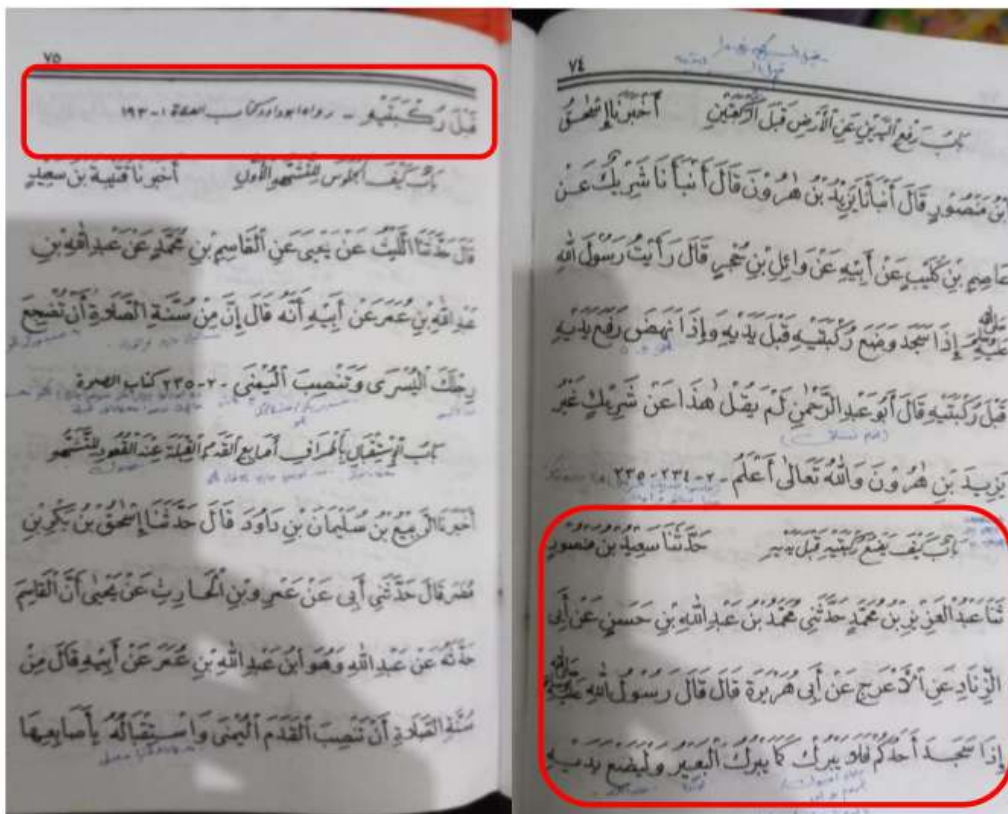 ٧٤
بَابُ رَفْعِ الْيَدَيْنِ عَنِ الْأَرْضِ قَبْلَ الرُّكْبَتَيْنِ أَخْبَرَنَا إِسْحٰقُ
ابْنُ مَنْصُورٍ قَالَ أَنْبَأَنَا يَزِيدُ بْنُ هٰرُوْنَ قَالَ أَنْبَأَنَا شَرِيكٌ عَنْ
عَاصِمِ بْنِ كُلَيْبٍ عَنْ أَبِيْهِ عَنْ وَائِلِ بْنِ حُجْرٍ قَالَ رَأَيْتُ رَسُوْلَ اللهِ
ﷺ إِذَا سَجَدَ وَضَعَ رُكْبَتَيْهِ قَبْلَ يَدَيْهِ وَإِذَا نَهَضَ رَفَعَ يَدَيْهِ
قَبْلَ رُكْبَتَيْهِ قَالَ أَبُوْ عَبْدِ الرَّحْمٰنِ لَمْ يَقُلْ هٰذَا عَنْ شَرِيكٍ غَيْرُ
يَزِيدَ بْنِ هٰرُوْنَ وَاللهُ تَعَالٰى أَعْلَمُ - ٢- ٢٣٤- ٢٣٥
بَابُ كَيْفَ يَضَعُ رُكْبَتَيْهِ قَبْلَ يَدَيْهِ حَدَّثَنَا سَعِيدُ بْنُ مَنْصُوْرٍ
ثَنَا عَبْدُ الْعَزِيْزِ بْنُ مُحَمَّدٍ حَدَّثَنِي مُحَمَّدُ بْنُ عَبْدِ اللهِ بْنِ حَسَنٍ عَنْ أَبِى
الزِّنَادِ عَنِ الْأَعْرَجِ عَنْ أَبِى هُرَيْرَةَ قَالَ قَالَ رَسُوْلُ اللهِ ﷺ
إِذَا سَجَدَ أَحَدُكُمْ فَلَا يَبْرُكْ كَمَا يَبْرُكُ الْبَعِيْرُ وَلْيَضَعْ يَدَيْهِ
٧٥
قَبْلَ رُكْبَتَيْهِ - رواه ابوداود كتاب الصلاة ١- ١٩٣
بَابُ كَيْفَ الْجُلُوْسُ لِلتَّشَهُّدِ الْأَوَّلِ أَخْبَرَنَا قُتَيْبَةُ بْنُ سَعِيْدٍ
قَالَ حَدَّثَنَا اللَّيْثُ عَنْ يَحْيَى عَنِ الْقَاسِمِ بْنِ مُحَمَّدٍ عَنْ عَبْدِ اللهِ بْنِ
عَبْدِ اللهِ بْنِ عُمَرَ عَنْ أَبِيْهِ أَنَّهُ قَالَ إِنَّ مِنْ سُنَّةِ الصَّلَاةِ أَنْ تُضْجِعَ
رِجْلَكَ الْيُسْرَى وَتَنْصِبَ الْيُمْنَى - ٢- ٢٣٥ كتاب
بَابُ الْإِسْتِقْبَالِ بِأَطْرَافِ أَصَابِعِ الْقَدَمِ الْقِبْلَةَ عِنْدَ الْقُعُوْدِ لِلتَّشَهُّدِ
أَخْبَرَنَا الرَّبِيْعُ بْنُ سُلَيْمَانَ بْنِ دَاوُدَ قَالَ حَدَّثَنَا إِسْحٰقُ بْنُ بَكْرِ بْنِ
مُضَرَ قَالَ حَدَّثَنِي أَبِى عَنْ عَمْرِو بْنِ الْحَارِثِ عَنْ يَحْيٰى أَنَّ الْقَاسِمَ
حَدَّثَهُ عَنْ عَبْدِ اللهِ وَهُوَ ابْنُ عَبْدِ اللهِ بْنِ عُمَرَ عَنْ أَبِيْهِ قَالَ مِنْ
سُنَّةِ الصَّلَاةِ أَنْ تَنْصِبَ الْقَدَمَ الْيُمْنَى وَاسْتِقْبَالُهُ بِأَصَابِعِهَا